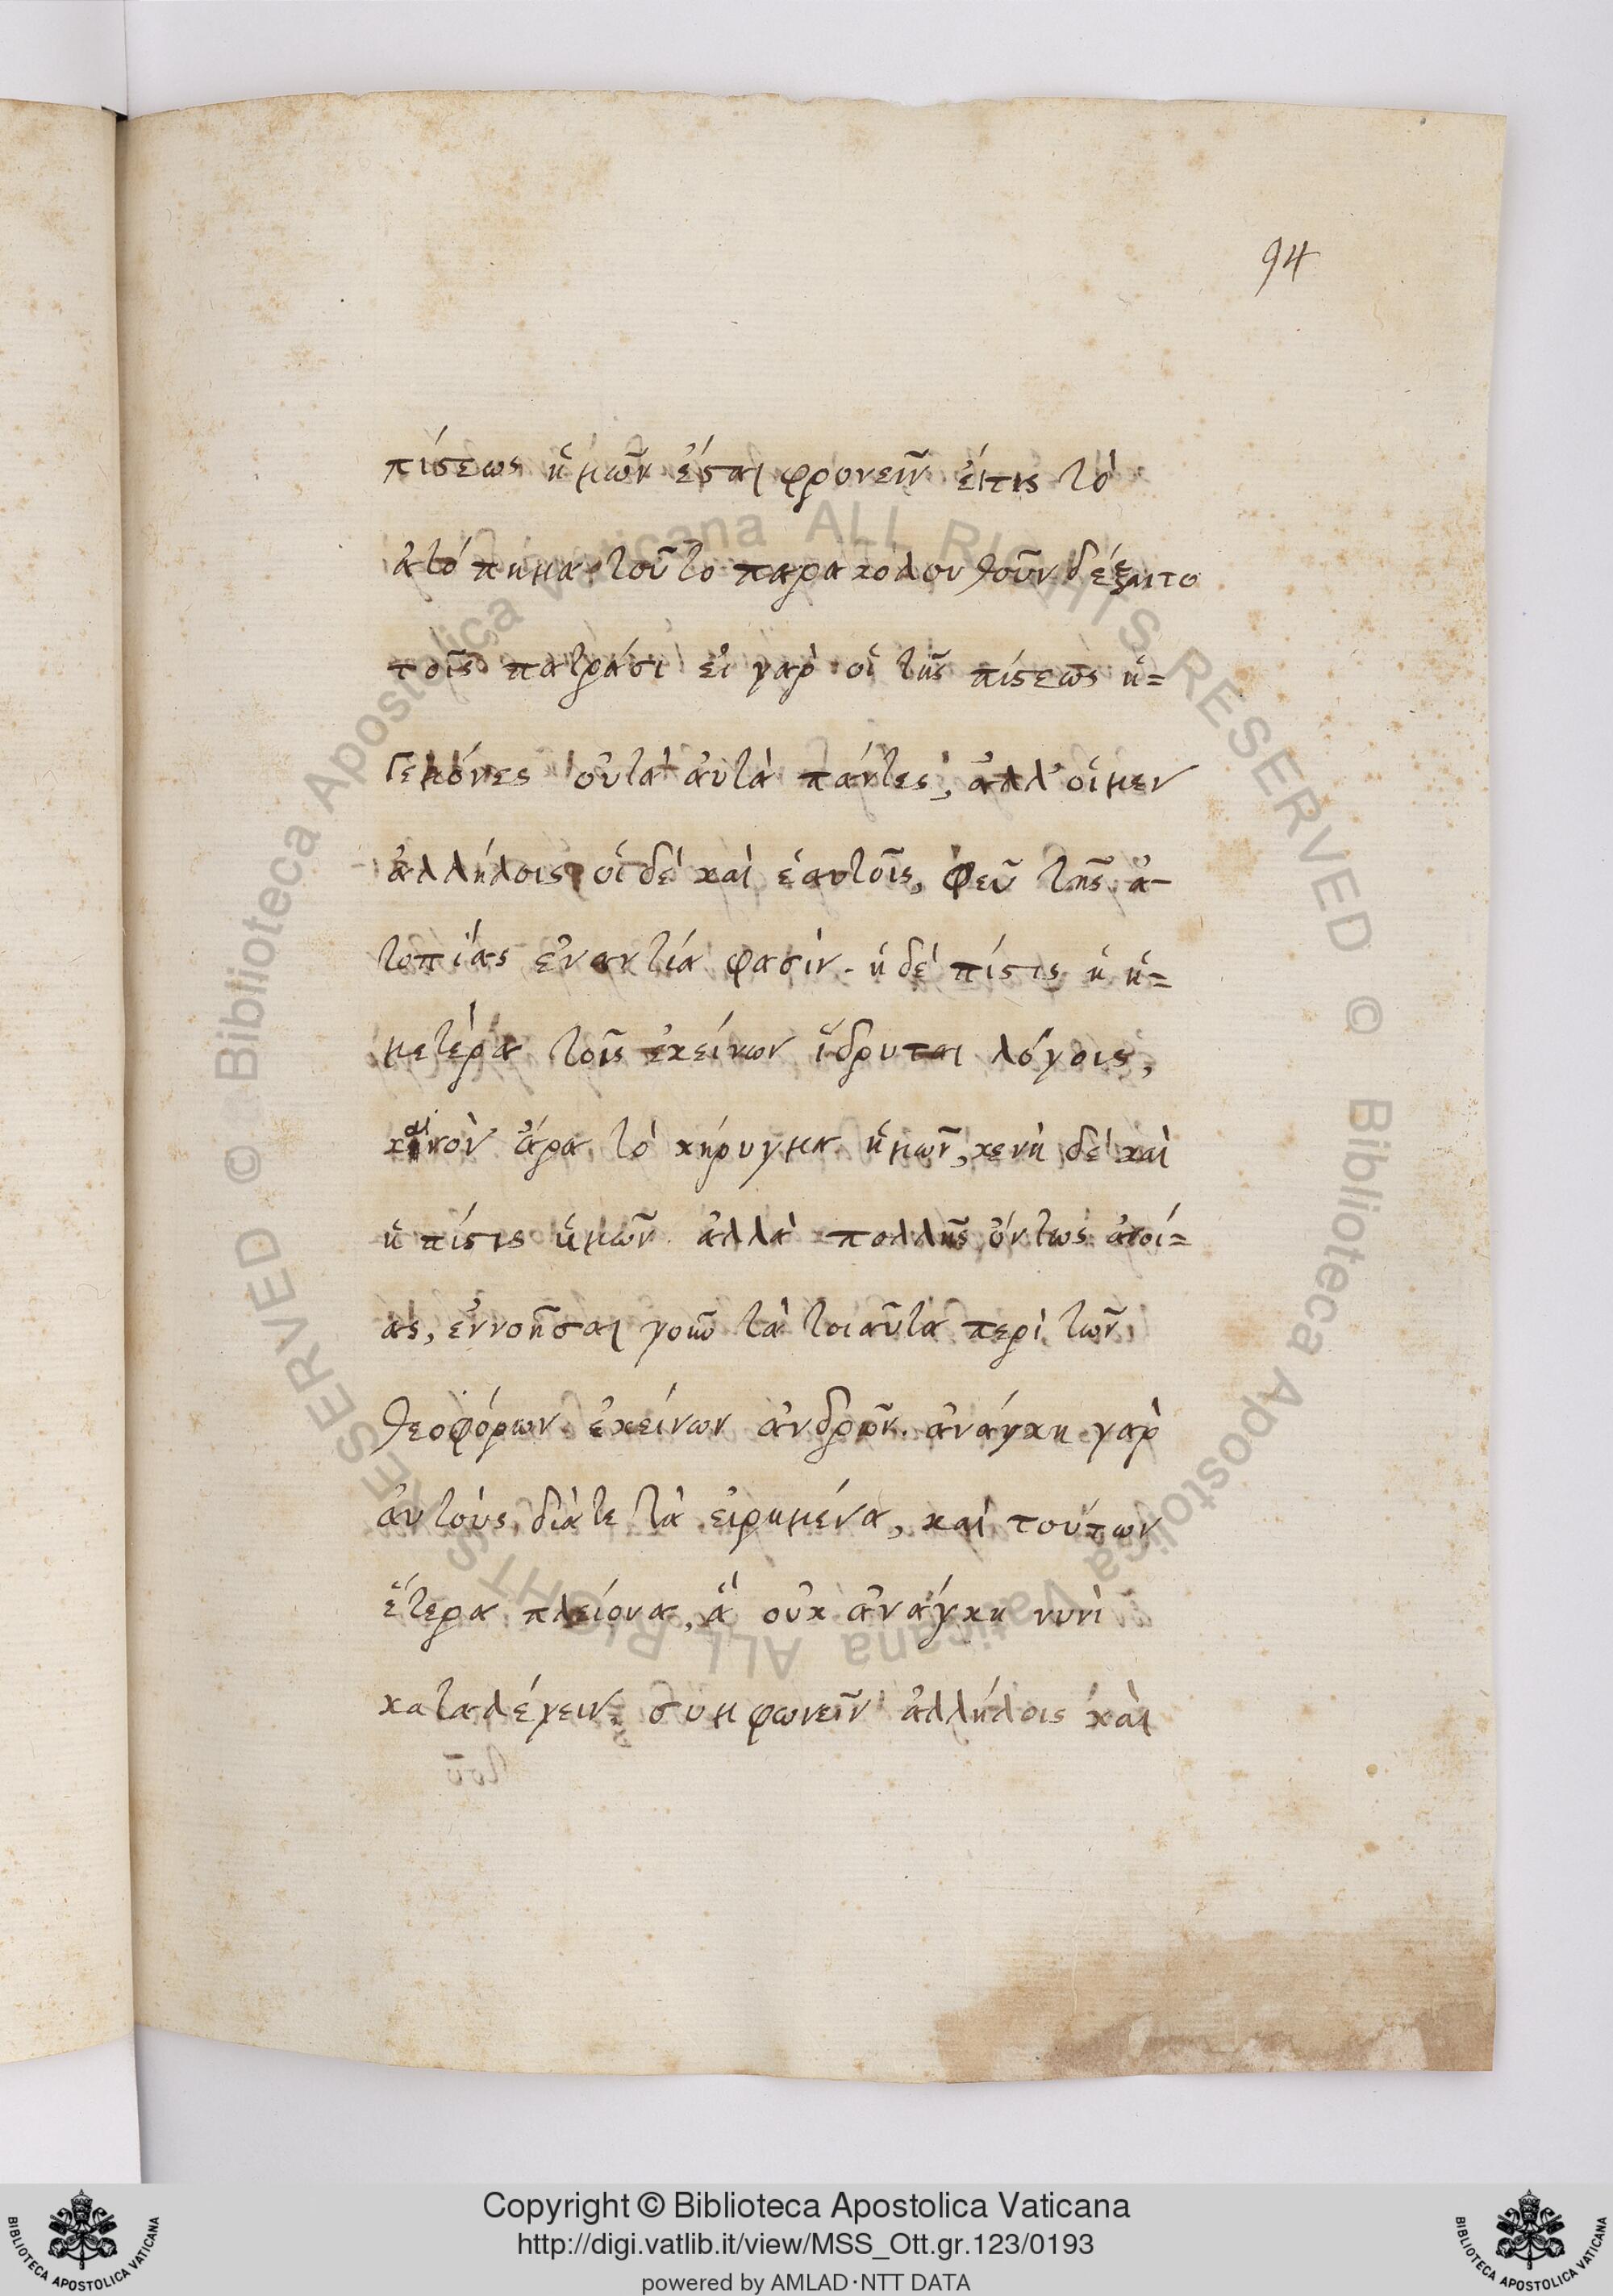 94
πίστεως ἡμῶν ἔσται φρονεῖν εἴτις τὸ
ἀτόπημα τοῦτο παρακολουθοῦν δέξαιτο
τοῖς πατράσι εἰ γαρ οἱ τῆς πίστεως ἡ=
γεμόνες οὐ τὰ αὐτὰ πάντες, ἀλλ' οἱ μεν
ἀλλήλοις οἱ δὲ καὶ ἑαυτοῖς, φεῦ τῆς ἀ-
τοπίας ἐναντία φασὶν. ἡ δὲ πίστις ἡ ἡ=
μετέρα τοῖς ἐκείνων ἵδρυται λόγοις,
καινὸν ἄρα τὸ κήρυγμα ἡμῶν, κενὴ δὲ καὶ
ἡ πίστις ἡμῶν. ἀλλὰ πολλῆς ὄντως ἀνοί=
ας, ἐννοῆσαι γοῦν τὰ τοιαῦτα περὶ τῶν
θεοφόρων ἐκείνων ἀνδρῶν. ἀνάγκη γαρ
ἀυτοὺς διὰ τε τὰ εἰρημένα, καὶ τούτων
ἕτερα πλείονα, ἃ οὐκ ἀνάγκη νυνὶ
καταλέγειν, συμφωνεῖν ἀλλήλοις καὶ
Copyright © Biblioteca Apostolica Vaticana
http://digi.vatlib.it/view/MSS_Ott.gr.123/0193
powered by AMLAD·NTT DATA
BIBLIOTECA APOSTOLICA VATICANA
BIBLIOTECA APOSTOLICA VATICANA
© Biblioteca Apostolica Vaticana ALL RIGHTS RESERVED
© Biblioteca Apostolica Vaticana ALL RIGHTS RESERVED